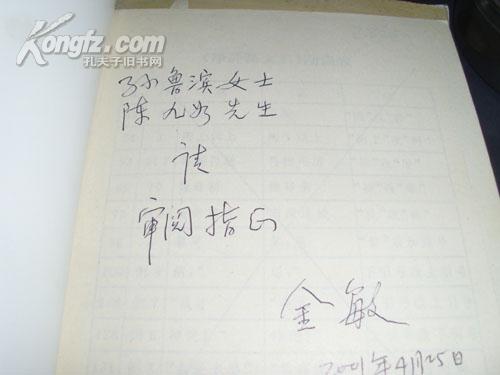 Kongfz.com
孔夫子旧书网
孙鲁滨女士
陈九如先生
请
审阅指正
金敏
2001年4月25日